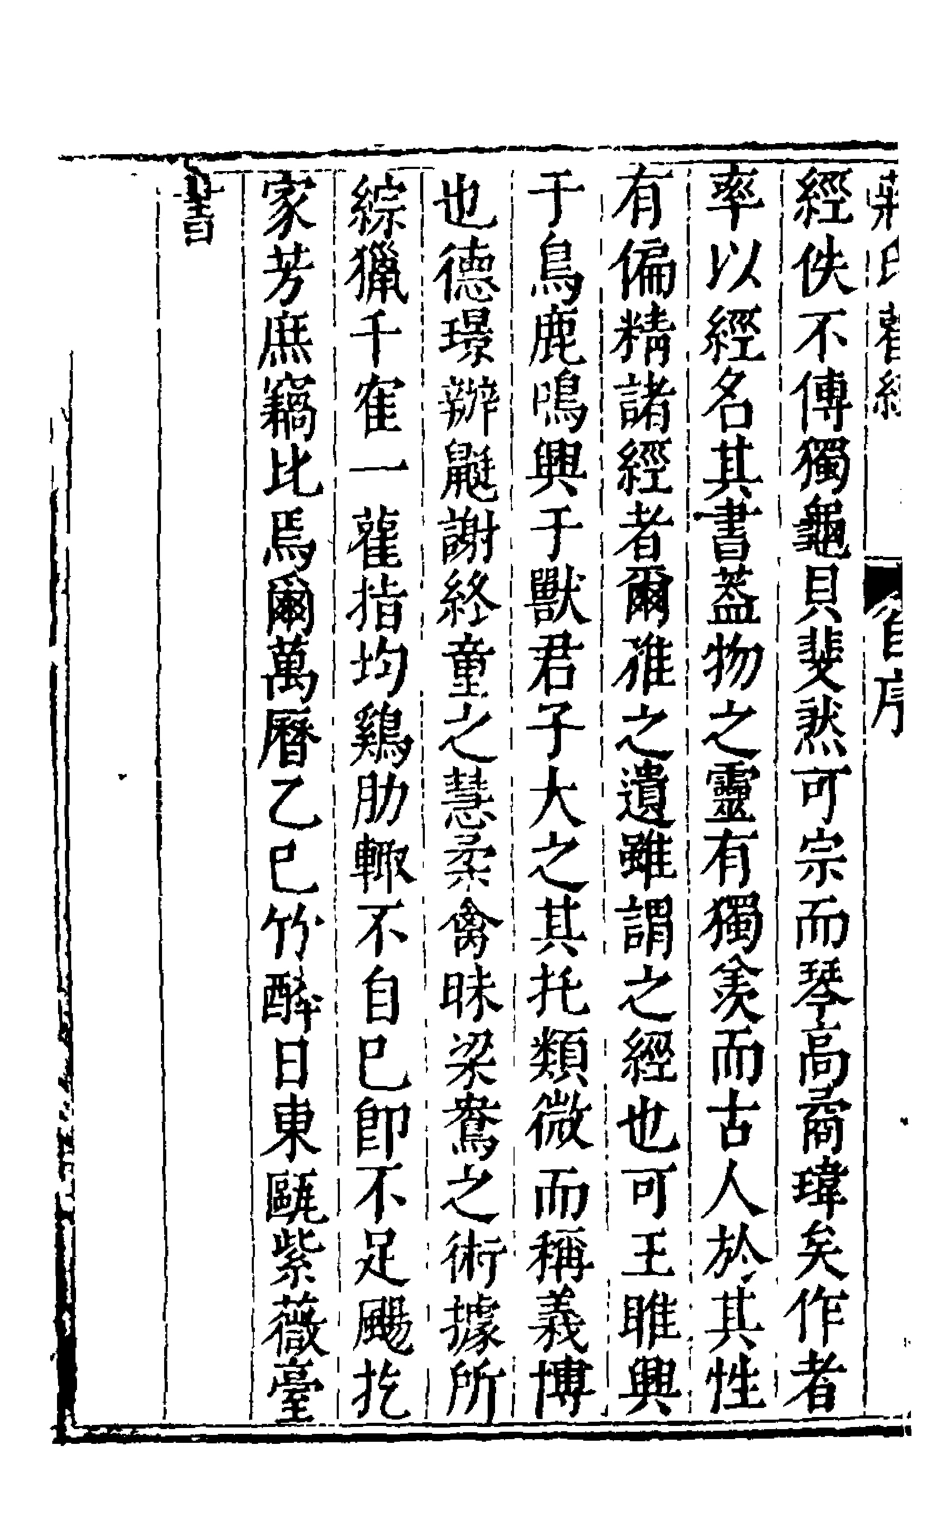 蔣氏晷經
自序
經佚不傳獨龜貝斐然可宗而琴高矞瑋矣作者
率以經名其書蓋物之靈有獨羨而古人於其性
有偏精諸經者爾雅之遺雖謂之經也可王雎興
于鳥鹿鳴興于獸君子大之其托類微而稱義博
也德璟辦鼮謝終童之慧柔禽昧梁鴦之術據所
綜獵千寉一雚指均鷄肋輙不自已卽不足颺扢
家芳庶竊比焉爾萬曆乙巳竹醉日東甌紫薇臺
書